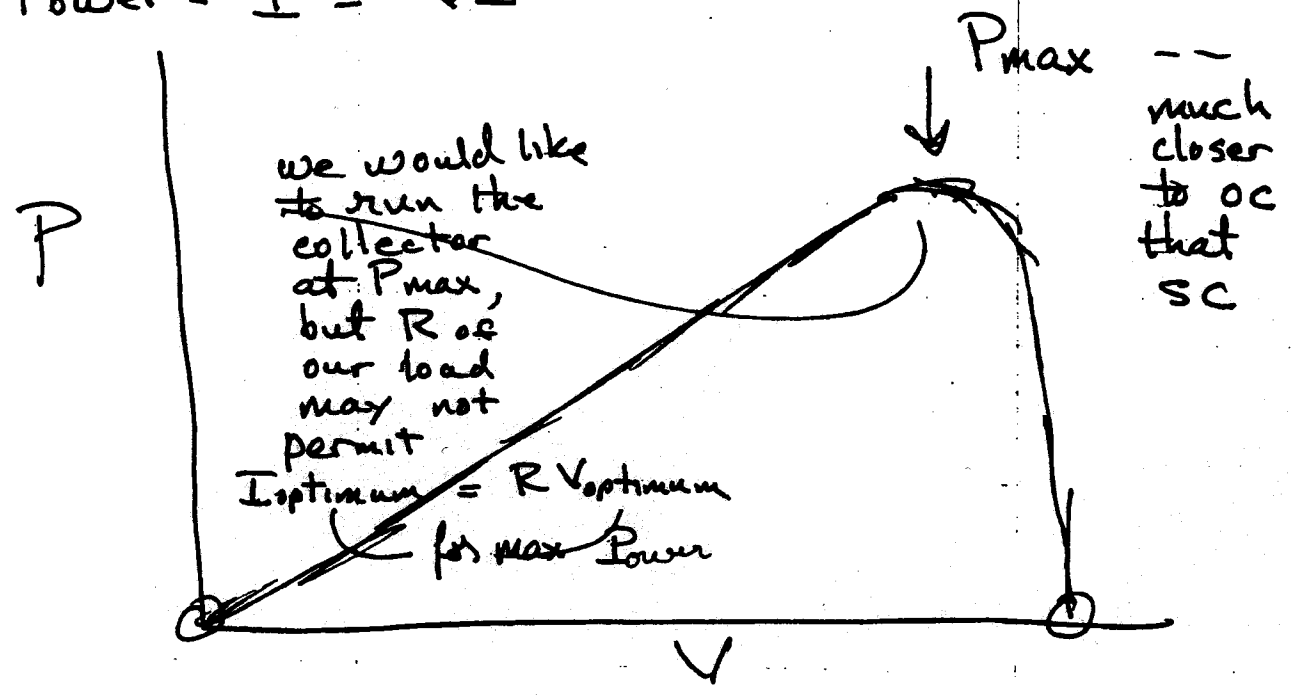 Power = I = VI
Pmax --
much
closer
to oc
that
sc
we would like
to run the
collector
at Pmax,
but R of
our load
may not
permit
Ioptimum = R Voptimum
for max Power
P
V